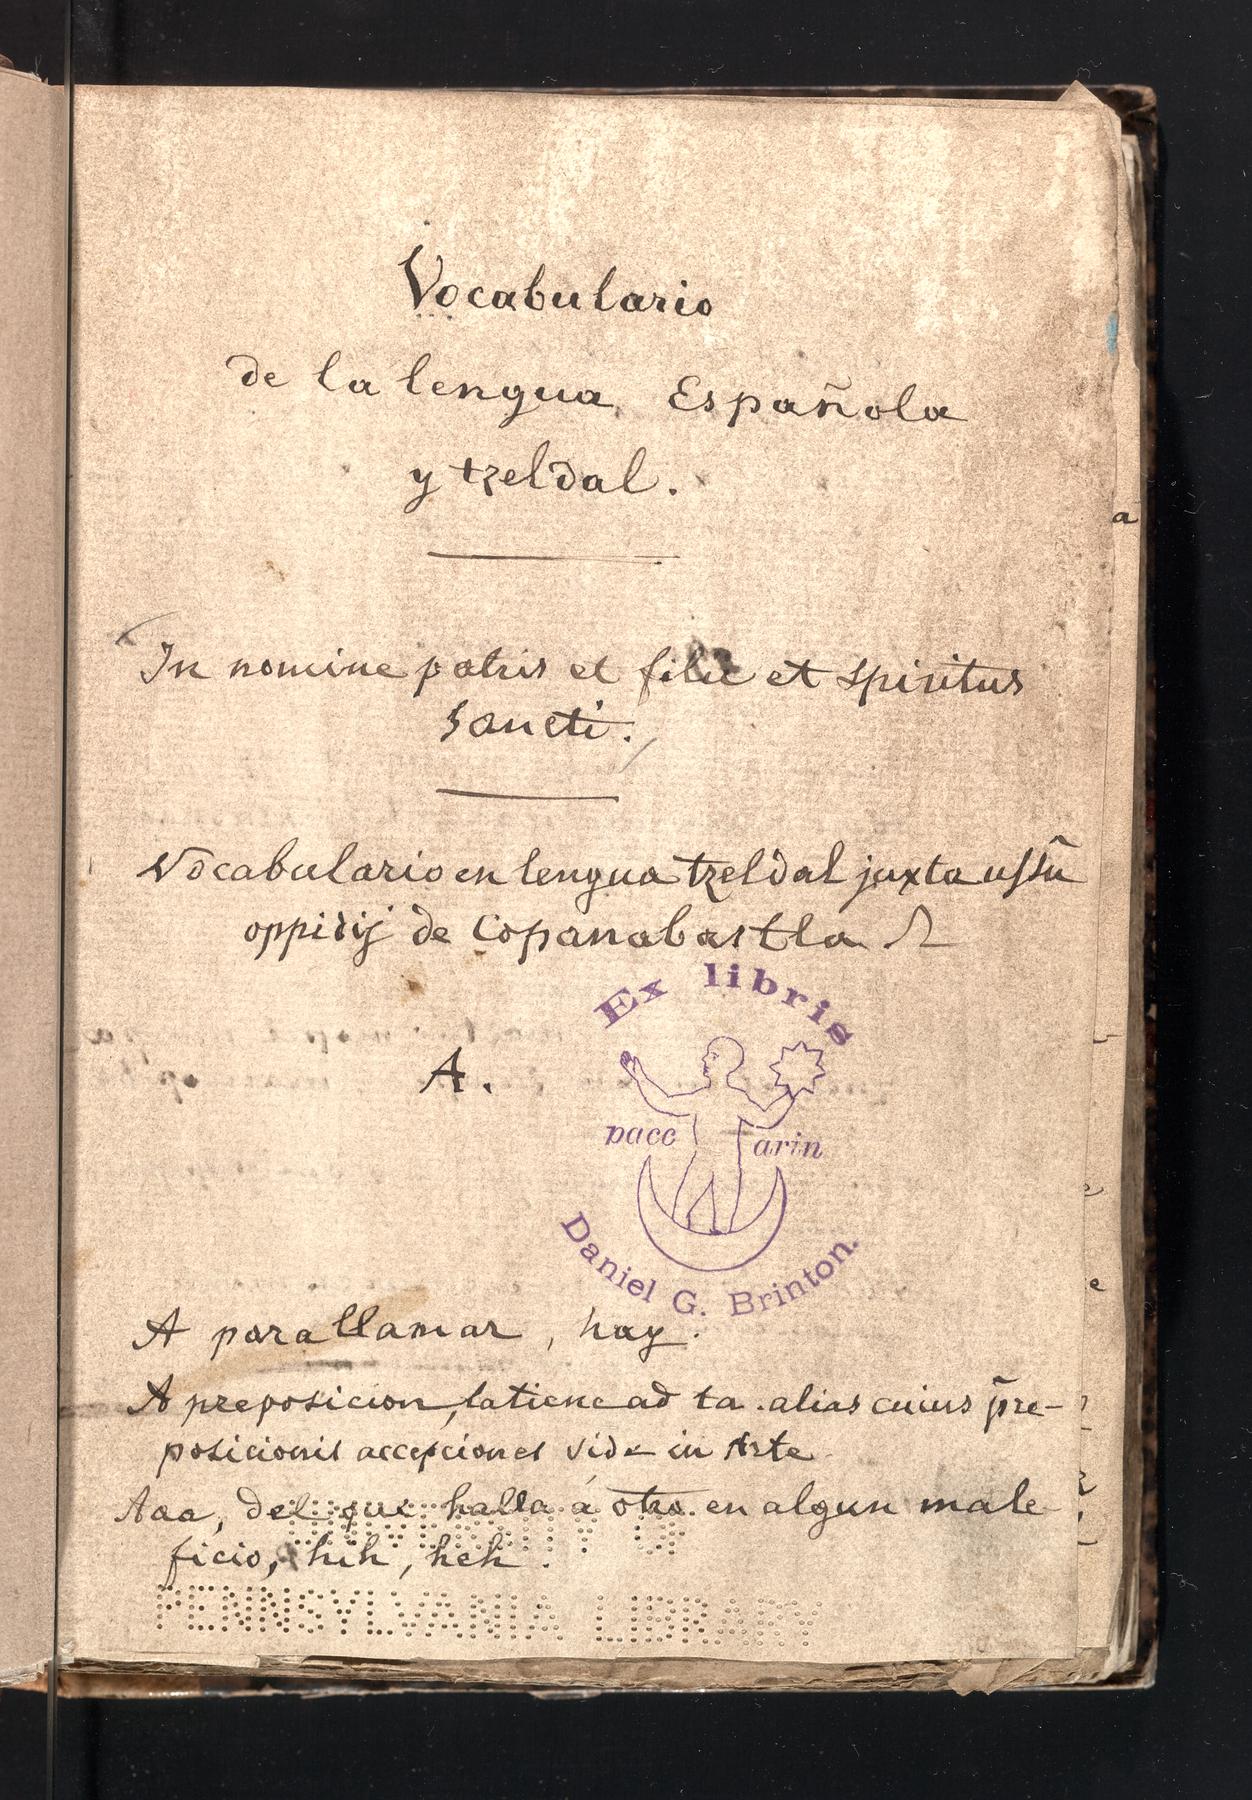 Vocabulario
de la lengua Española
y tzeldal.
In nomine patris et filii et spiritus
sancti.
Vocabulario en lengua tzeldal juxta ussũ
oppidij de Copanabastla
Ex libris
A.
pacc arin
Daniel G. Brinton.
A para llamar, hay.
A preposicion, latiene ad ta. alias cuius p̃re-
posicionis accepciones vide in Arte
Aaa, del que halla á otro en algun male
ficio, hih, heh.
UNIVERSITY OF
PENNSYLVANIA LIBRARY